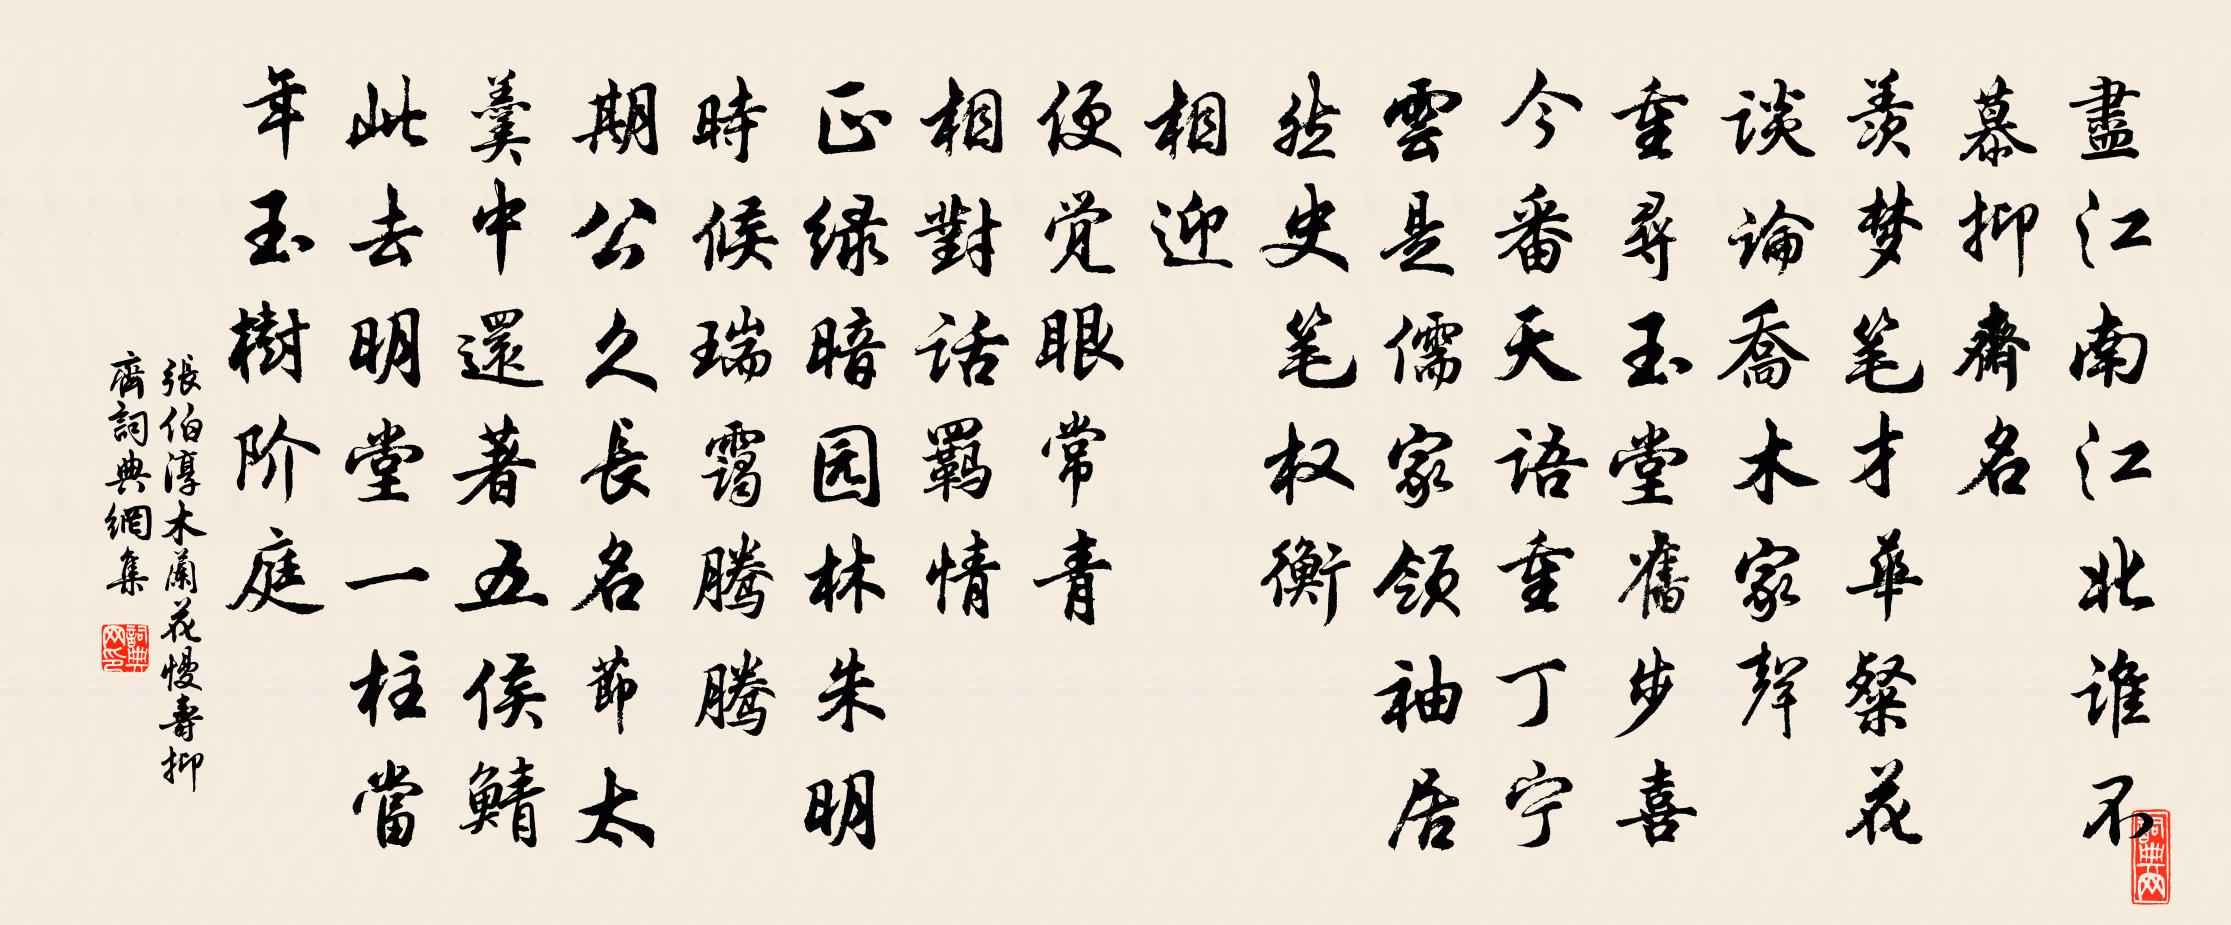 盡江南江北谁不
慕抑齋名
羨梦笔才華粲花
談論喬木家聲
重尋玉堂舊步喜
今番天语重丁宁
雲是儒家领袖居
然史笔权衡
相迎
便觉眼常青
相對话羁情
正绿暗园林朱明
時候瑞霭腾腾
期公久長名莭太
羹中還著五侯鯖
此去明堂一柱當
年玉樹阶庭
張伯淳木蘭花慢壽抑
齊詞典網集
詞典网印
詞典网